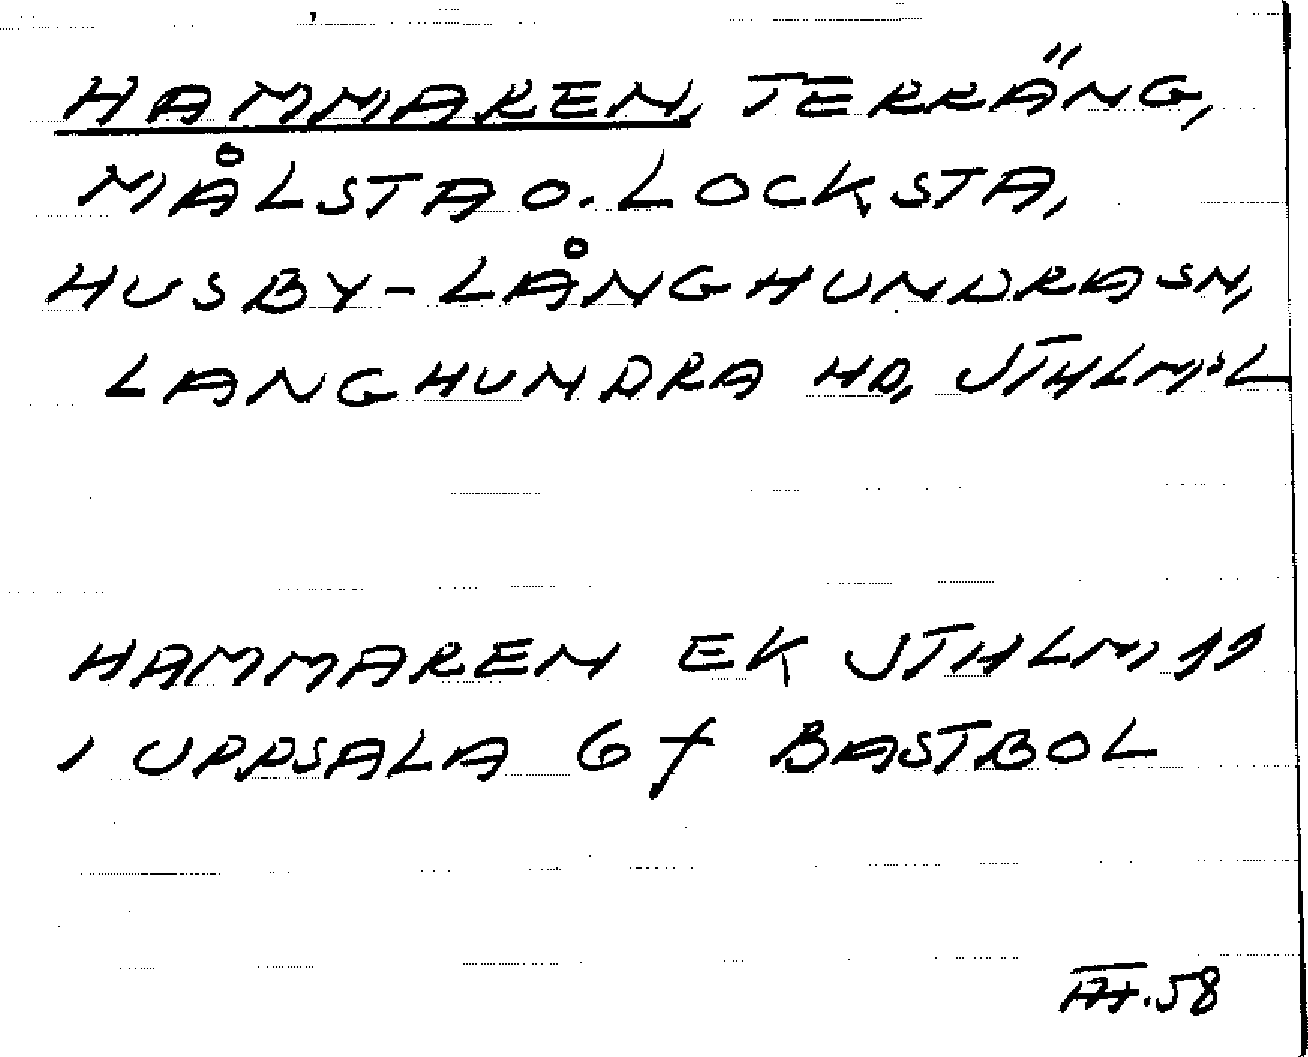 HAMMAREN, TERRÄNG,
MÅLSTA O. LOCKSTA,
HUSBY-LÅNGHUNDRA SN,
LANGHUNDRA HD, STHLMS L
HAMMAREN EK STHLM 99
, UPPSALA 67 BASTBOL
.58